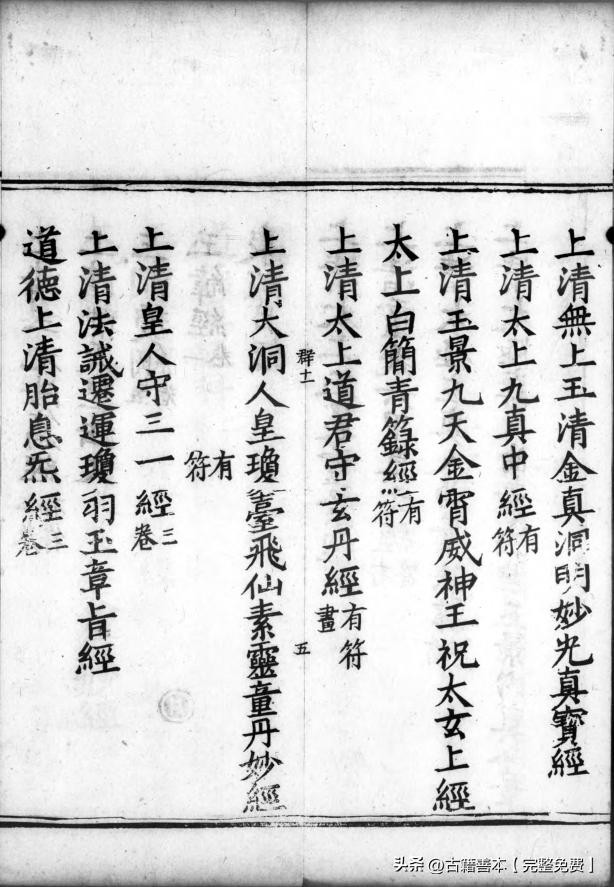 上清無上玉清金真洞明妙光真寶經
上清太上九真中經有符
上清玉景九天金霄威神王祝太玄上經
太上白簡青籙經有符
上清太上道君守玄丹經有符畫
群十一
五
上清大洞人皇瓊臺飛仙素靈童丹妙經
有符
上清皇人守三一經三卷
上清法誡遷運瓊羽玉章旨經
道德上清胎息炁經三卷
头条 @古籍善本【完整免费】